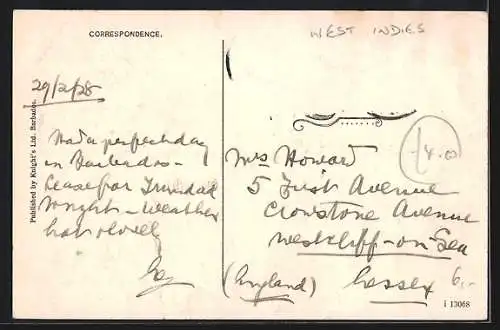 CORRESPONDENCE.
WEST INDIES
Published by Knight's Ltd. Barbados.
29/2/28
Had a perfect day
in Barbados -
Lease for Trinidad
tonight - weather
hot & lovely
Mrs Howard
5 First Avenue
Crowstone Avenue
Westcliff-on-Sea
(England) Essex
/4.00
6.-
i 13068